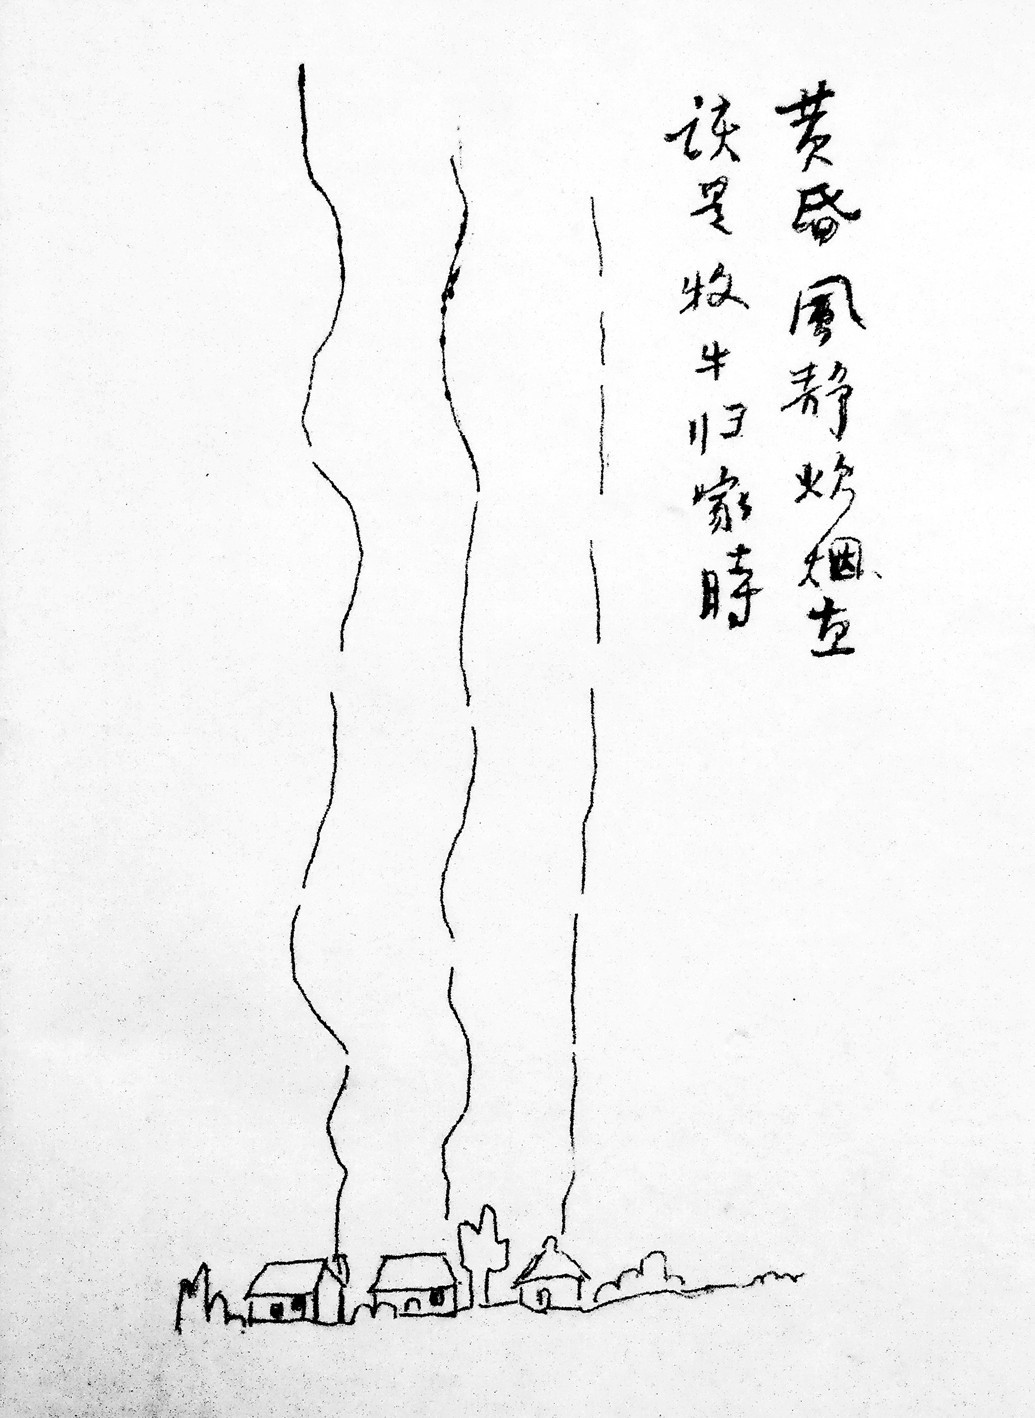 黄昏風静炊烟直
该是牧牛归家時